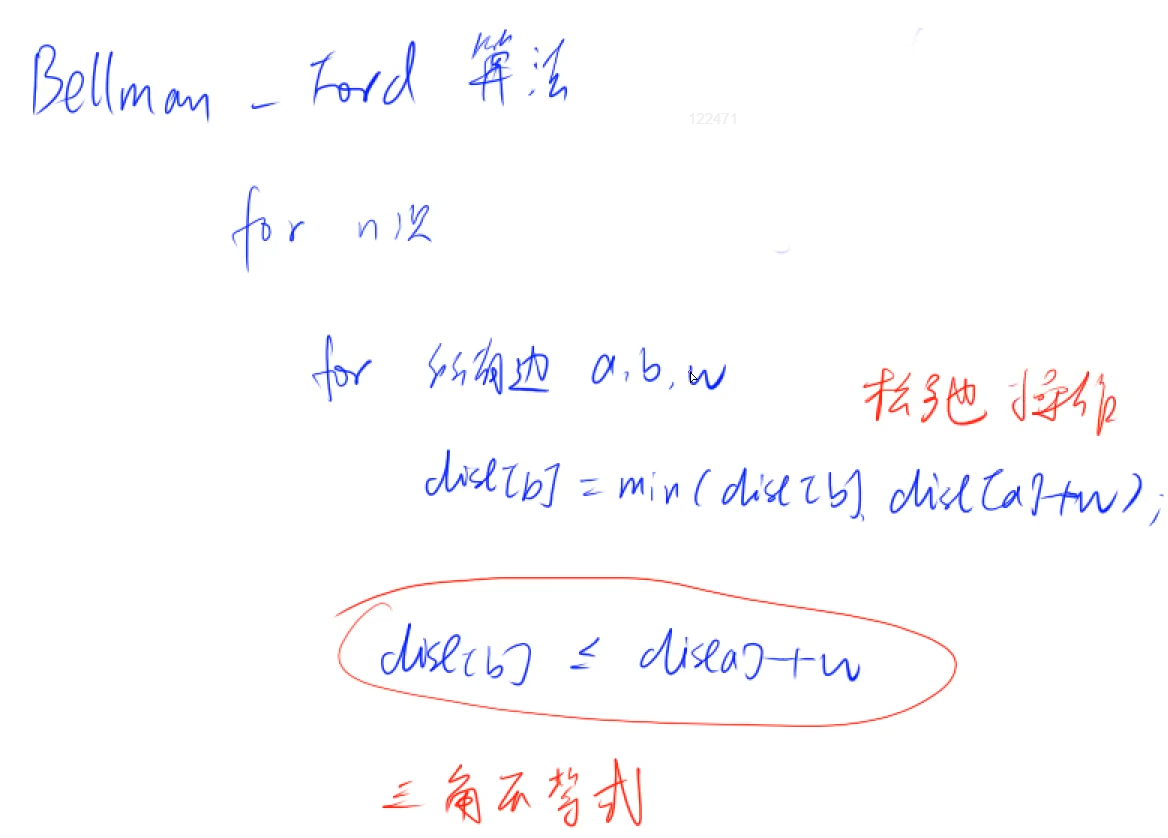 Bellman - Ford 算法
122471
for n次
for 所有边 a, b, w
松弛操作
dist[b] = min(dist[b], dist[a]+w);
dist[b] ≤ dist[a]+w
三角不等式